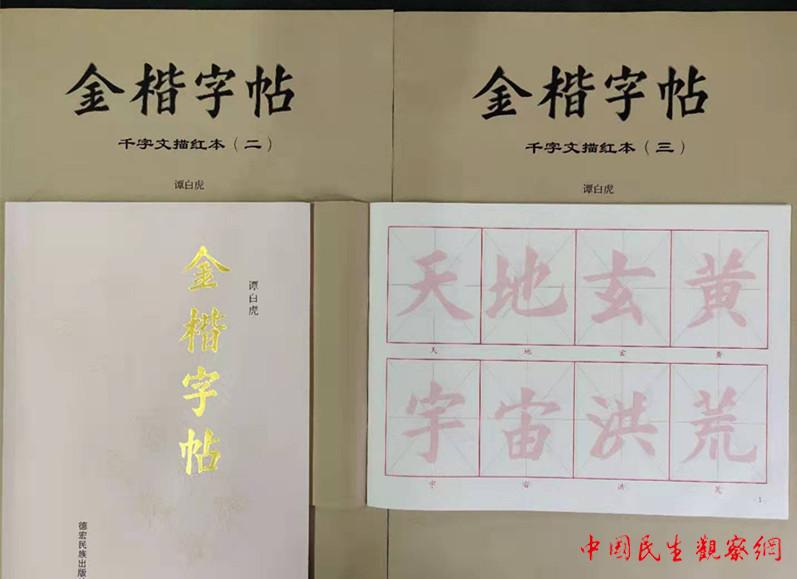 金楷字帖
千字文描红本（二）
谭白虎
金楷字帖
千字文描红本（三）
谭白虎
金楷字帖
谭白虎
德宏民族出版
天地玄黄
天 地 玄 黄
宇宙洪荒
宇 宙 洪 荒
1
中国民生觀察網